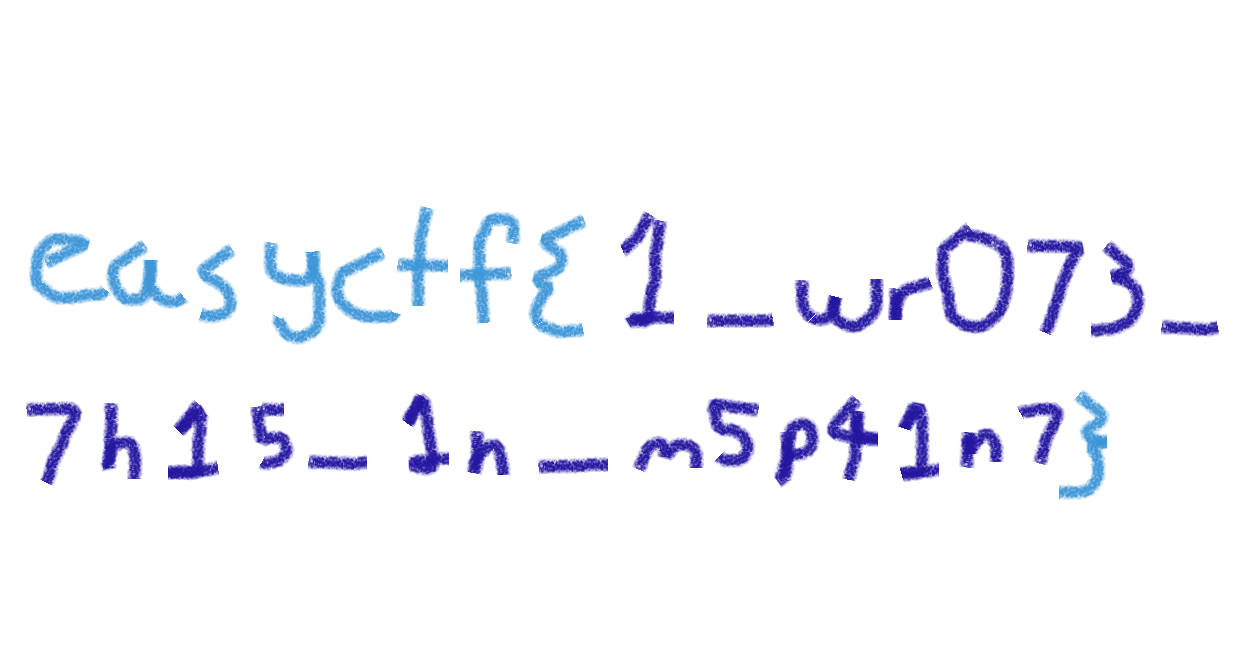 easyctf{1_wr073_
7h15_1n_m5p41n7}